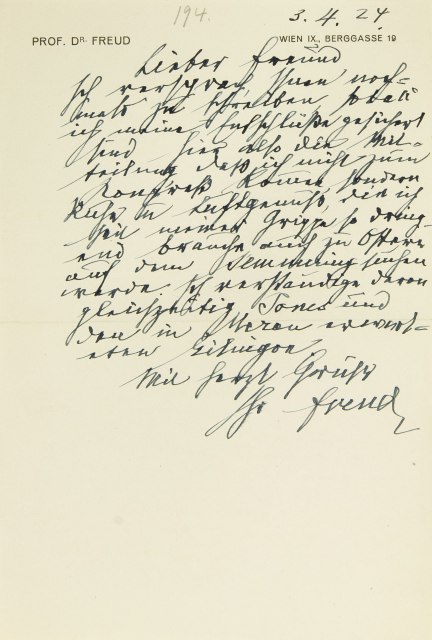 194.
3. 4. 24
PROF. DR. FREUD
WIEN IX., BERGGASSE 19
Lieber Freund
Ich versprach Ihnen noch=
mals zu schreiben, sobald
ich meine Entschlüße gesichert
sind. Hier also die Mit=
teilung daß ich nicht zum
Kongreß komme sondern
Ruhe u Luftgenuß, die ich
seit meiner Grippe so dring=
end brauche auch zu Ostern
auf dem Semmering suchen
werde. Ich verständige davon
gleichzeitig Jones und
den in Meran erwart=
eten Eitingon
Mit herzl Gruß
Ihr Freud